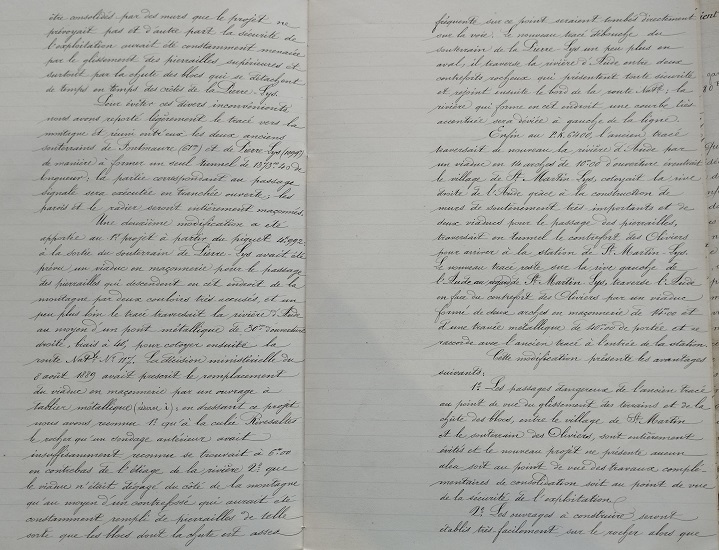 être consolidés par des murs que le projet ne
prévoyait pas et d'autre part la sécurité de
l'exploitation aurait été constamment menacée
par le glissement des pierrailles supérieures et
surtout par la chute des blocs qui se détachent
de temps en temps des crêtes de la Pierre-Lys.
Pour éviter ces divers inconvénients
nous avons reporté légèrement le tracé vers la
montagne et réuni entr'eux les deux anciens
souterrains de et de Pierre-Lys
de manière à former un seul tunnel de 1373m40 de
longueur; la partie correspondant au passage
signalé sera exécutée en tranchée ouverte; les
parois et le radier seront entièrement maçonnés.
Une deuxième modification a été
apportée au 1er projet à partir du piquet
à la sortie du souterrain de Pierre-Lys avait été
prévu un viaduc en maçonnerie pour le passage
des pierrailles qui descendent en cet endroit de la
montagne par deux couloirs très accusés, et un
peu plus loin le tracé traversait la rivière d'Aude
au moyen d'un pont métallique de 30m d'ouverture
droite, biais à 45g, pour côtoyer ensuite la
route Natle No 117. La décision ministérielle du
8 août 1889 avait prescrit le remplacement
du viaduc en maçonnerie par un ouvrage à
tablier métallique; en dressant ce projet
nous avons reconnu 1o qu'à la culée Rivesaltes
le rocher qu'un sondage antérieur avait
insuffisamment reconnu se trouvait à 6m00
en contrebas de l'étiage de la rivière 2o que
le viaduc n'était dégagé du côté de la montagne
qu'au moyen d'un contrefossé qui aurait été
constamment rempli de pierrailles de telle
sorte que les blocs dont la chute est assez
fréquente sur ce point seraient tombés directement
sur la voie. Le nouveau tracé débouche du
souterrain de la Pierre-Lys un peu plus en
aval; il traverse la rivière d'Aude entre deux
contreforts rocheux qui présentent toute sécurité
et rejoint ensuite le bord de la route Natle; la
rivière qui forme en cet endroit une courbe très
accentuée sera déviée à gauche de la ligne.
Enfin au P.K. 6400, l'ancien tracé
traversait de nouveau la rivière d'Aude par
un viaduc en 14 arches de 10m00 d'ouverture
le village de St Martin-Lys, côtoyait la rive
droite de l'Aude grâce à la construction de
murs de soutènement très importants et de
deux viaducs pour le passage des pierrailles,
traversait en tunnel le contrefort des Oliviers
pour arriver à la station de St Martin-Lys.
Le nouveau tracé reste sur la rive gauche de
l'Aude au de St Martin-Lys, traverse l'Aude
en face du contrefort des Oliviers par un viaduc
formé de deux arches en maçonnerie de et
d'une travée métallique de 40m00 de portée et se
raccorde avec l'ancien tracé à l'entrée de la station.
Cette modification présente les avantages
suivants:
1o Les passages dangereux de l'ancien tracé
au point de vue du glissement des terrains et de la
chute des blocs, entre le village de St Martin
et le souterrain des Oliviers, sont entièrement
évités et le nouveau projet ne présente aucun
aléa soit au point de vue des travaux complé-
mentaires de consolidation soit au point de vue
de la sécurité de l'exploitation.
2o Les ouvrages à construire seront
établis très facilement sur le rocher alors que